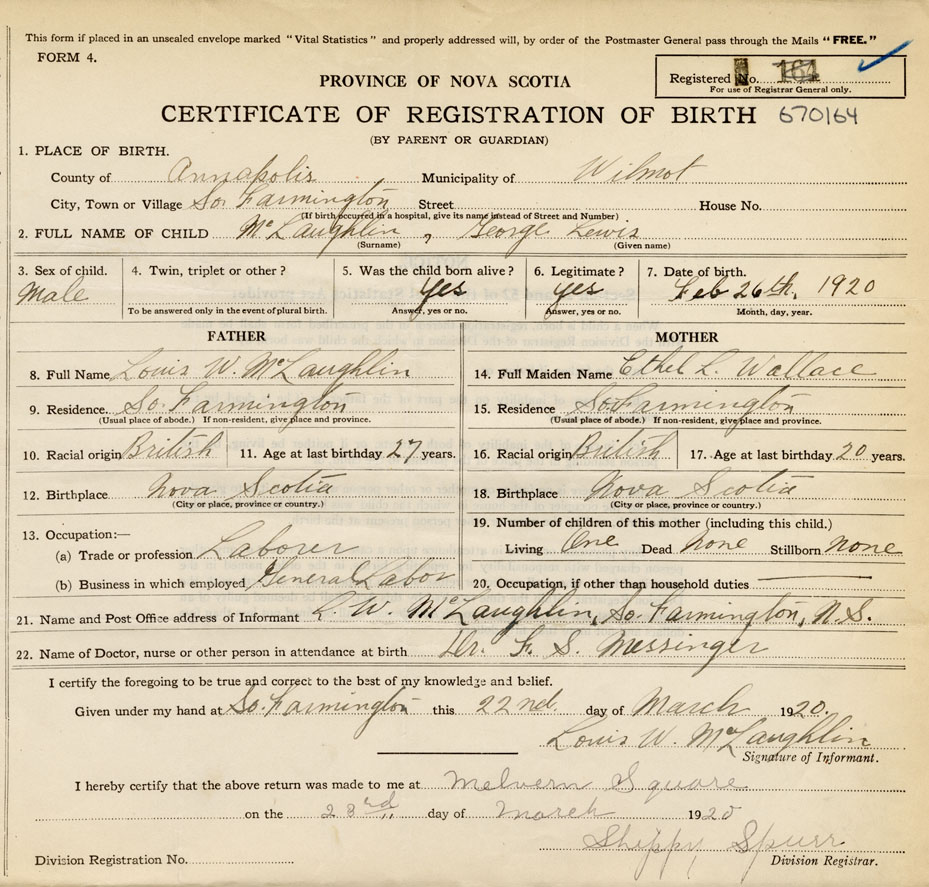 This form if placed in an unsealed envelope marked "Vital Statistics" and properly addressed will, by order of the Postmaster General pass through the Mails "FREE."
FORM 4.
Registered No. 164
For use of Registrar General only.
PROVINCE OF NOVA SCOTIA
CERTIFICATE OF REGISTRATION OF BIRTH 670164
(BY PARENT OR GUARDIAN)
1. PLACE OF BIRTH.
County of Annapolis Municipality of Wilmot
City, Town or Village So. Farmington Street House No.
(If birth occurred in a hospital, give its name instead of Street and Number)
2. FULL NAME OF CHILD McLaughlin, George Lewis
(Surname) (Given name)
3. Sex of child. 4. Twin, triplet or other? 5. Was the child born alive? 6. Legitimate? 7. Date of birth.
Male Yes Yes Feb 26th, 1920
To be answered only in the event of plural birth. Answer, yes or no. Answer, yes or no. Month, day, year.
FATHER MOTHER
8. Full Name Louis W. McLaughlin 14. Full Maiden Name Ethel L. Wallace
9. Residence. So. Farmington 15. Residence So. Farmington
(Usual place of abode.) If non-resident, give place and province. (Usual place of abode.) If non-resident, give place and province.
10. Racial origin British 11. Age at last birthday 27 years. 16. Racial origin British 17. Age at last birthday 20 years.
12. Birthplace Nova Scotia 18. Birthplace Nova Scotia
(City or place, province or country.) (City or place, province or country.)
13. Occupation:— 19. Number of children of this mother (including this child.)
(a) Trade or profession Laborer Living One Dead None Stillborn None
(b) Business in which employed General Labor 20. Occupation, if other than household duties
21. Name and Post Office address of Informant L. W. McLaughlin, So. Farmington, N.S.
22. Name of Doctor, nurse or other person in attendance at birth Dr. F. S. Messinger
I certify the foregoing to be true and correct to the best of my knowledge and belief.
Given under my hand at So. Farmington this 22nd. day of March 1920.
Louis W. McLaughlin
Signature of Informant.
I hereby certify that the above return was made to me at Melvern Square
on the 23rd day of March 1920
Shippy Spurr
Division Registration No. Division Registrar.